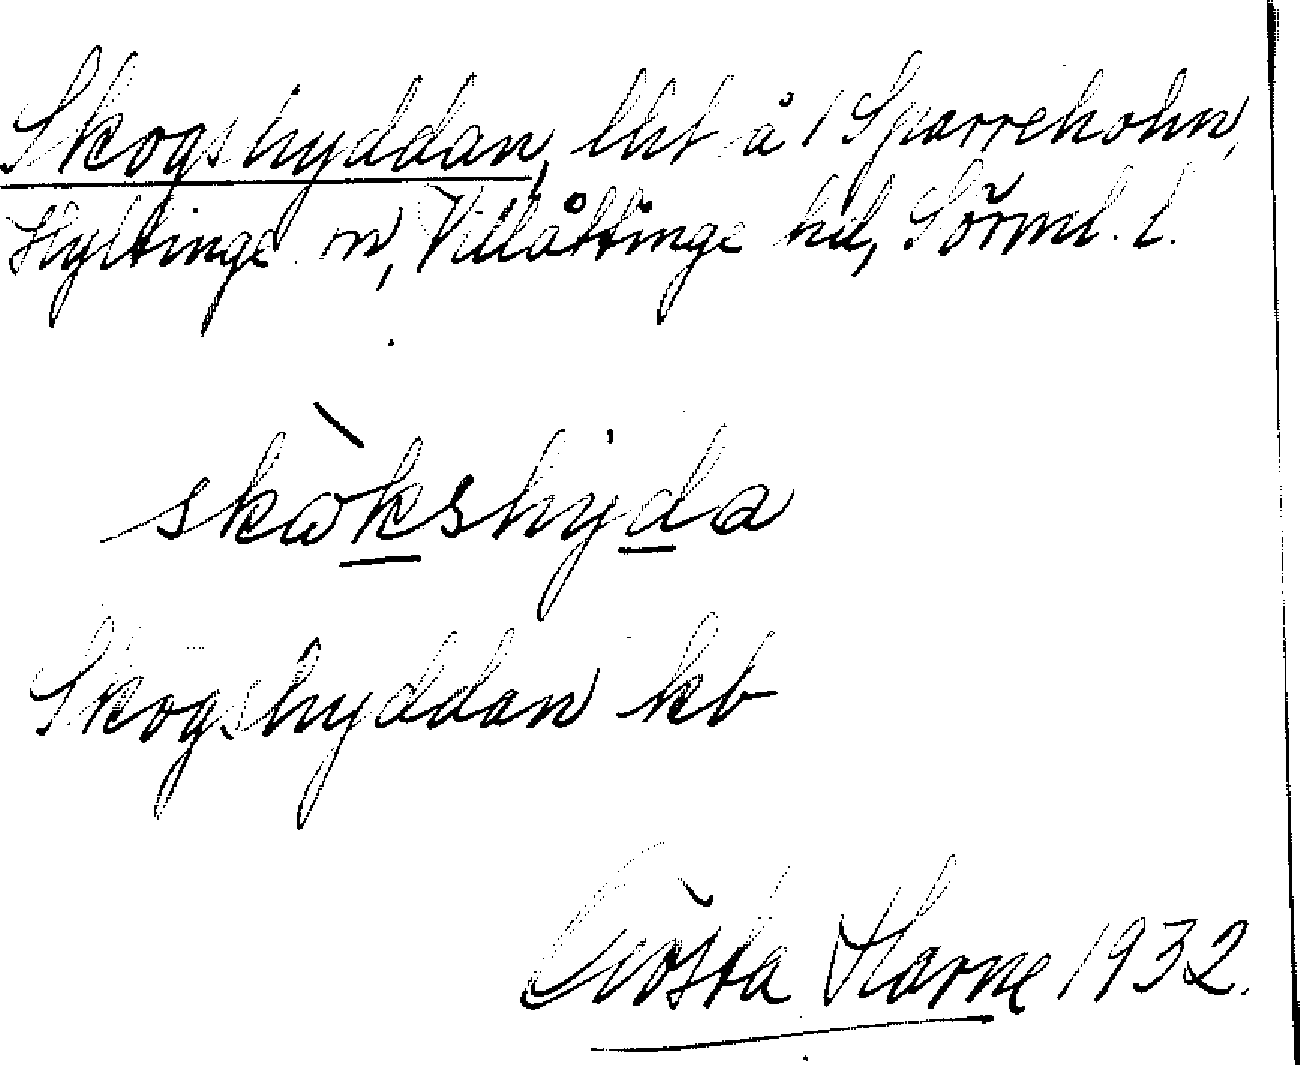 Skogshyddan, lht å 1 Sparreholm,
Hyltinge sn, Villåttinge hd, Sörml. l.
skòkshyda
Skogshyddan kb
Gösta Harne 1932.